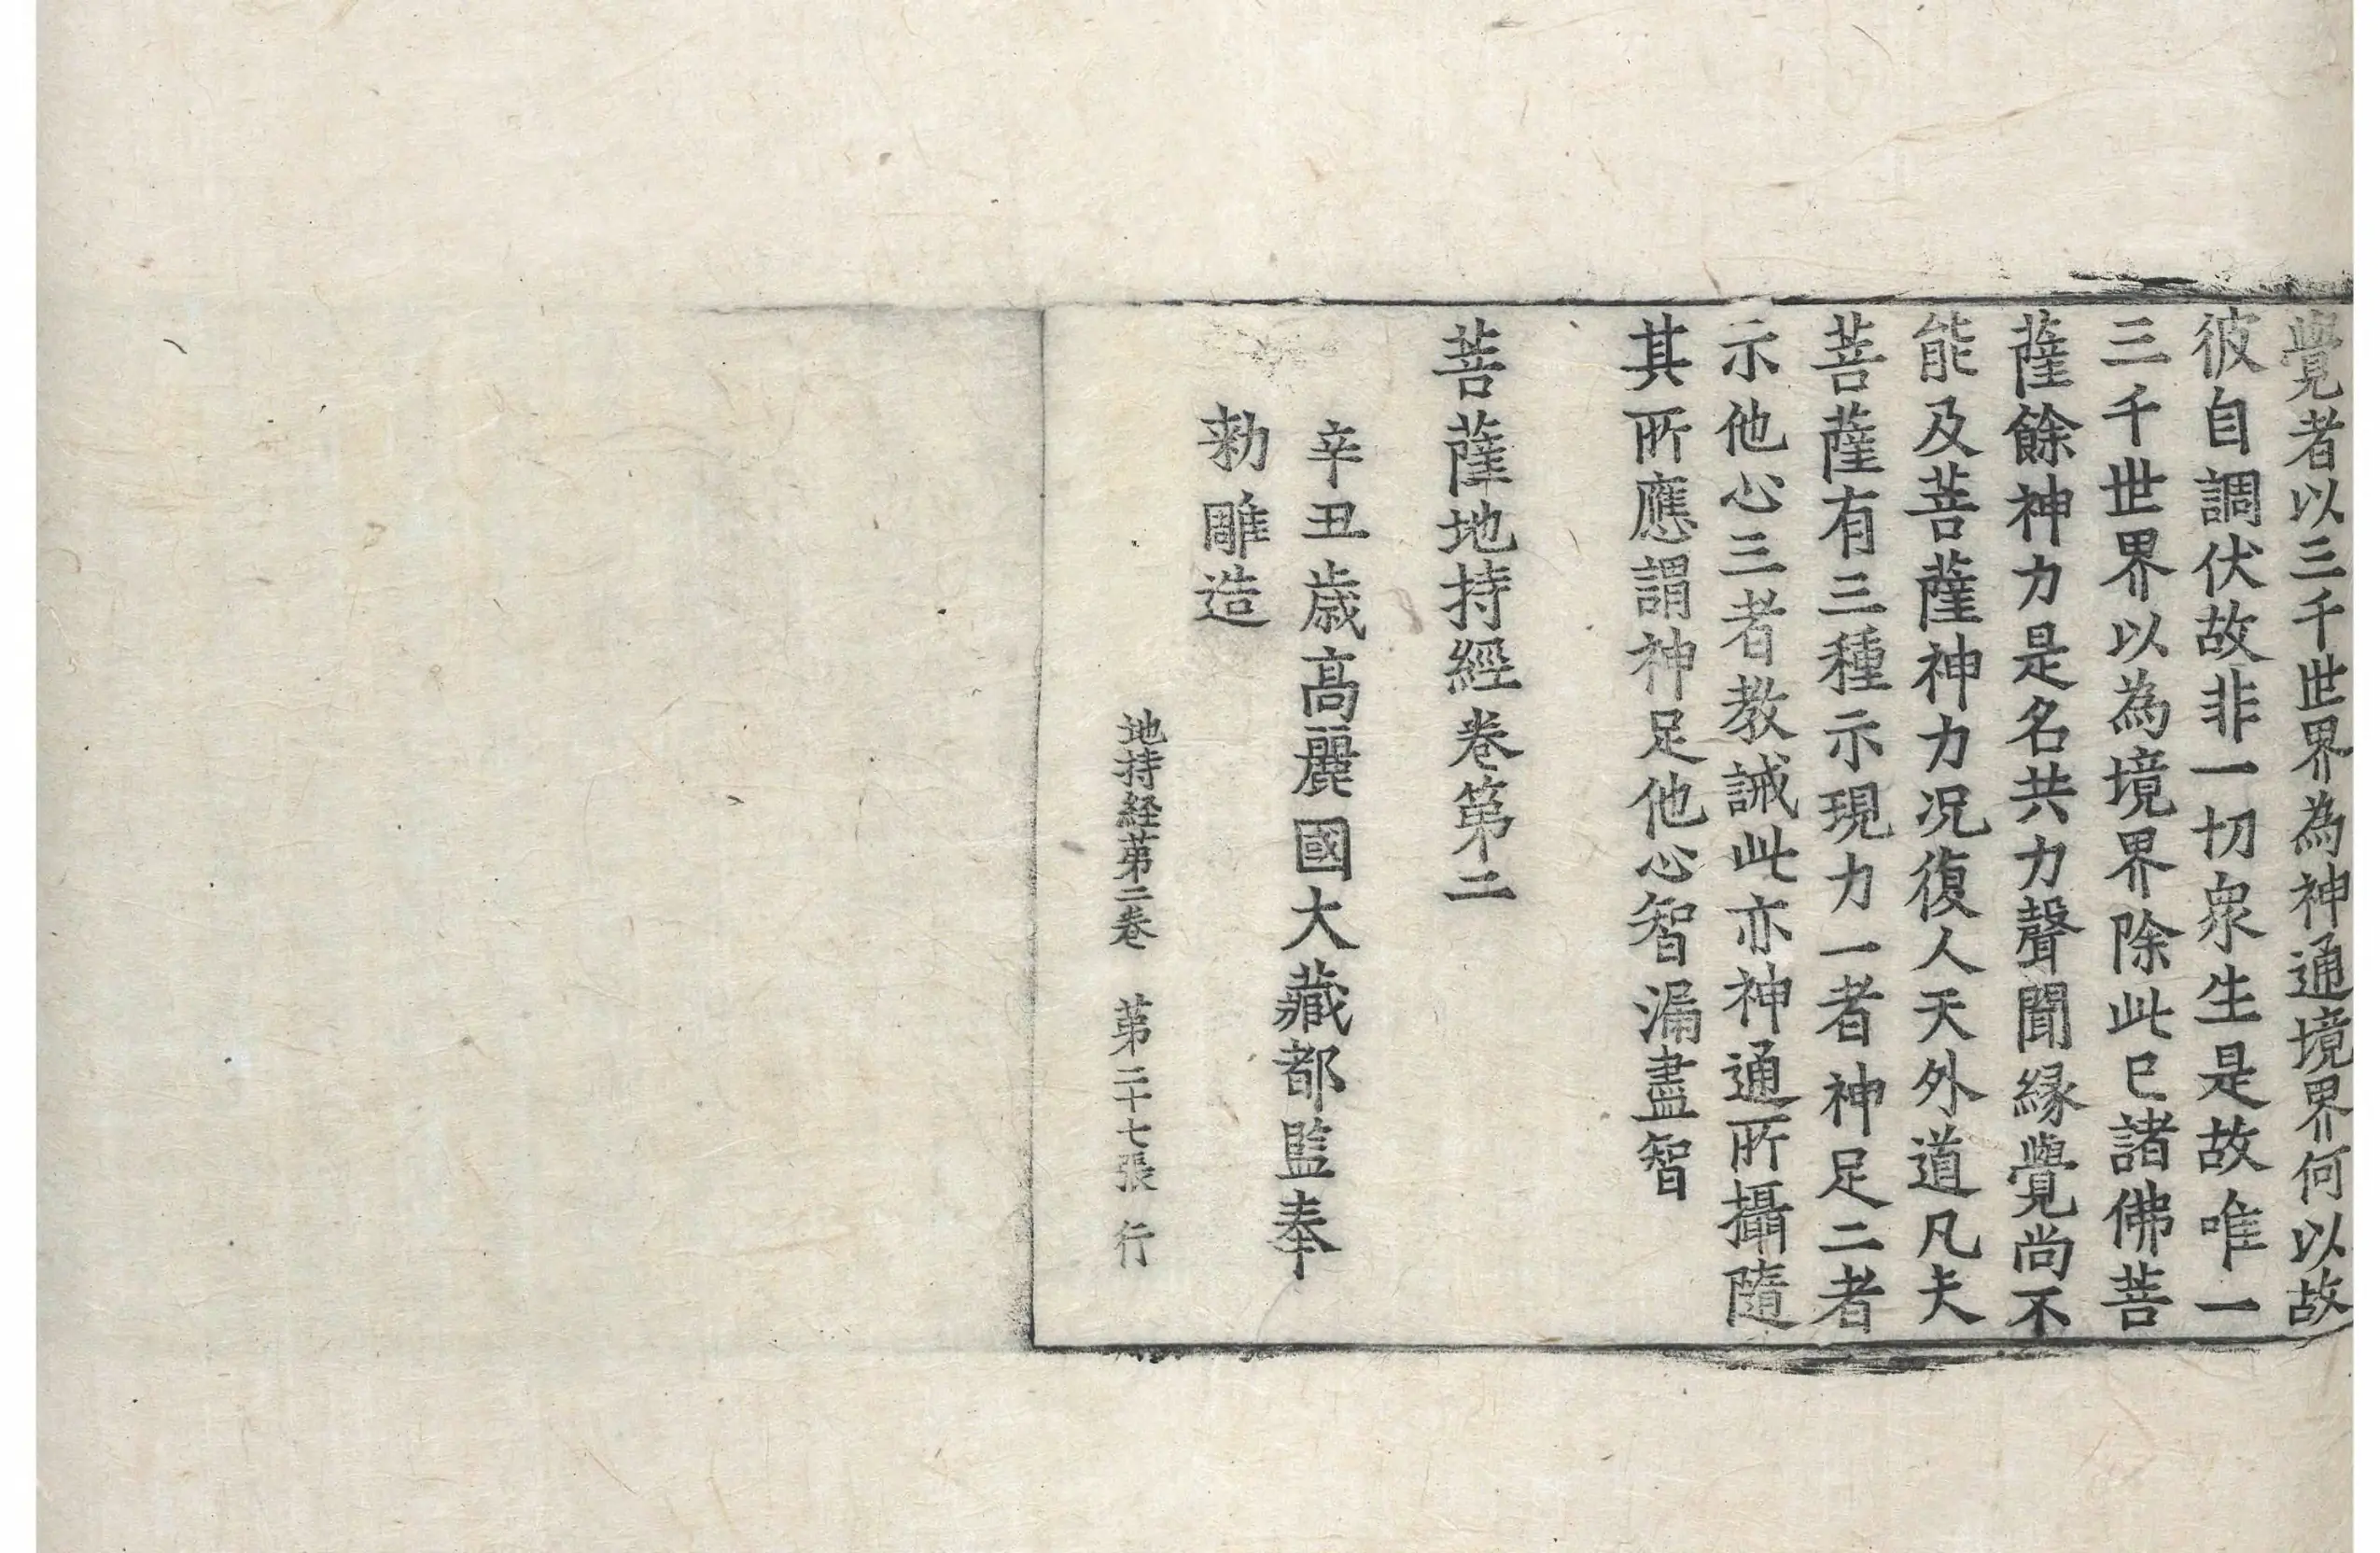 覺者以三千世界為神通境界何以故
彼自調伏故非一切衆生是故唯一
三千世界以為境界除此巳諸佛菩
薩餘神力是名共力聲聞緣覺尚不
能及菩薩神力况復人天外道凡夫
菩薩有三種示現力一者神足二者
示他心三者教誡此亦神通所攝隨
其所應謂神足他心智漏盡智
菩薩地持經卷第二
辛丑歲高麗國大藏都監奉
勑雕造
地持経苐二卷 苐二十七張 行